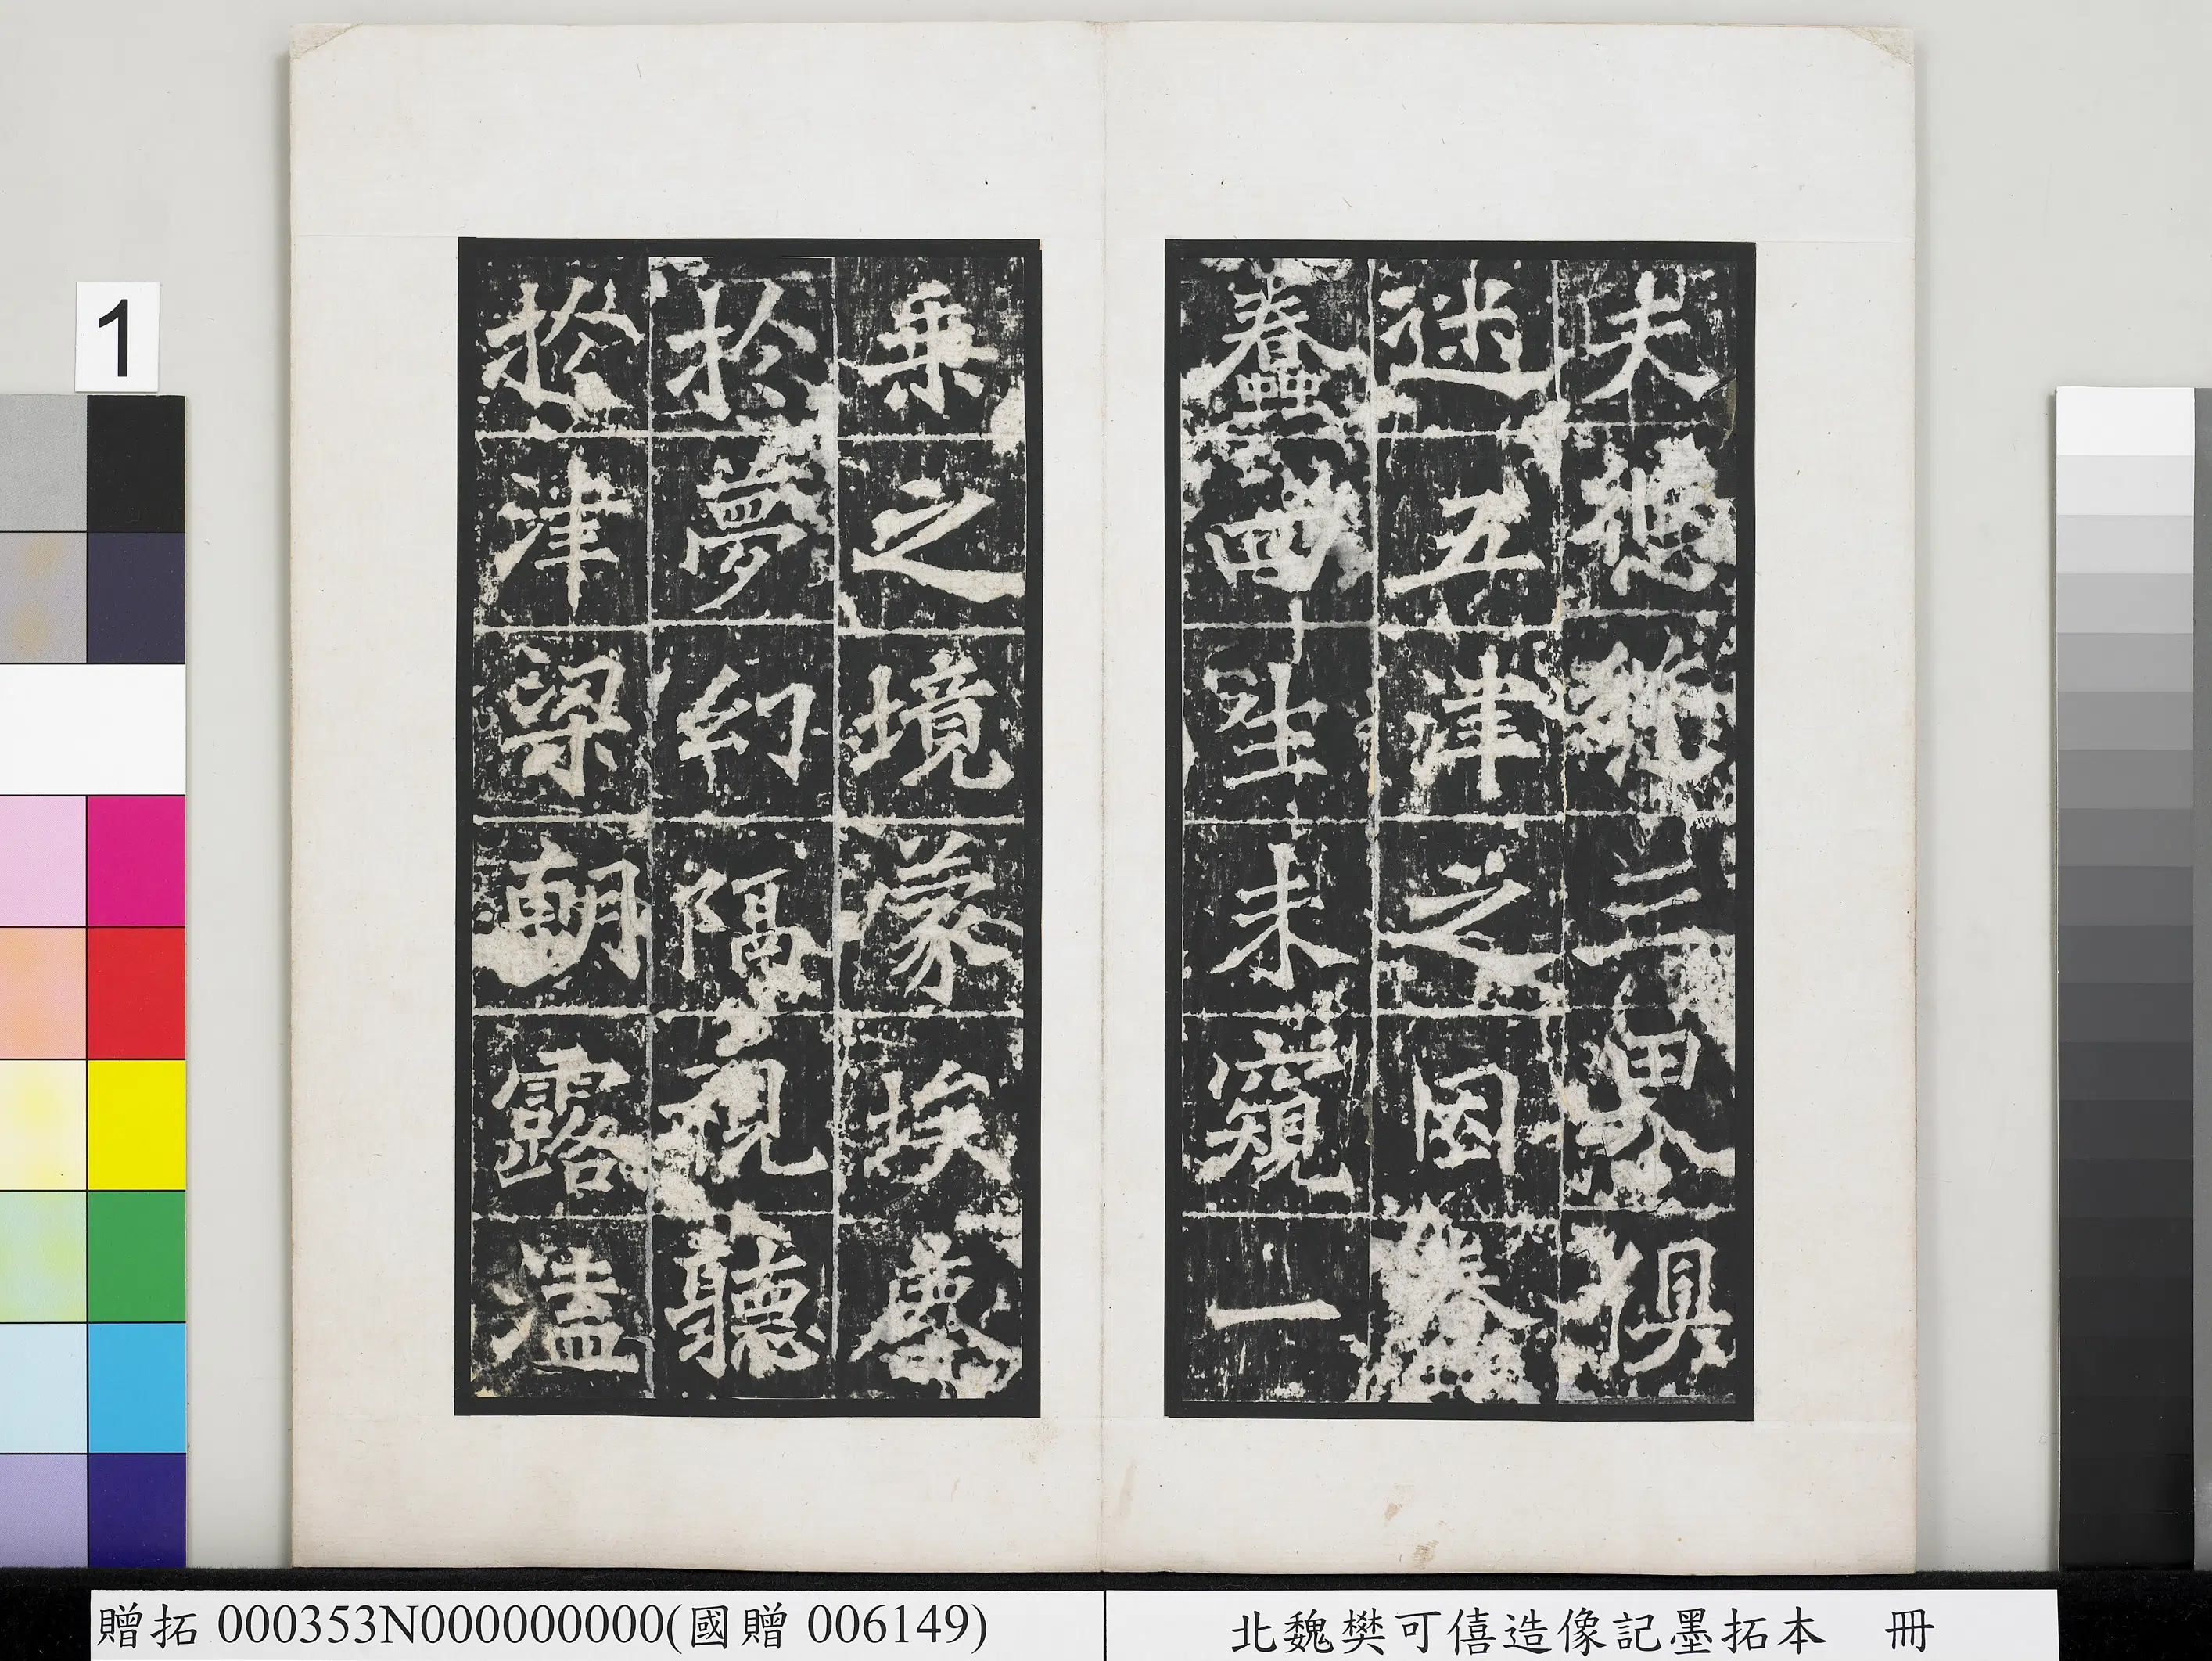 夫三界俱
迷五津之因蠢
蠢四生未窺一
乘之境蒙埃塵
於夢幻隔視聽
於津梁朝露溘
1
贈拓 000353N000000000(國贈 006149)
北魏樊可僖造像記墨拓本 冊